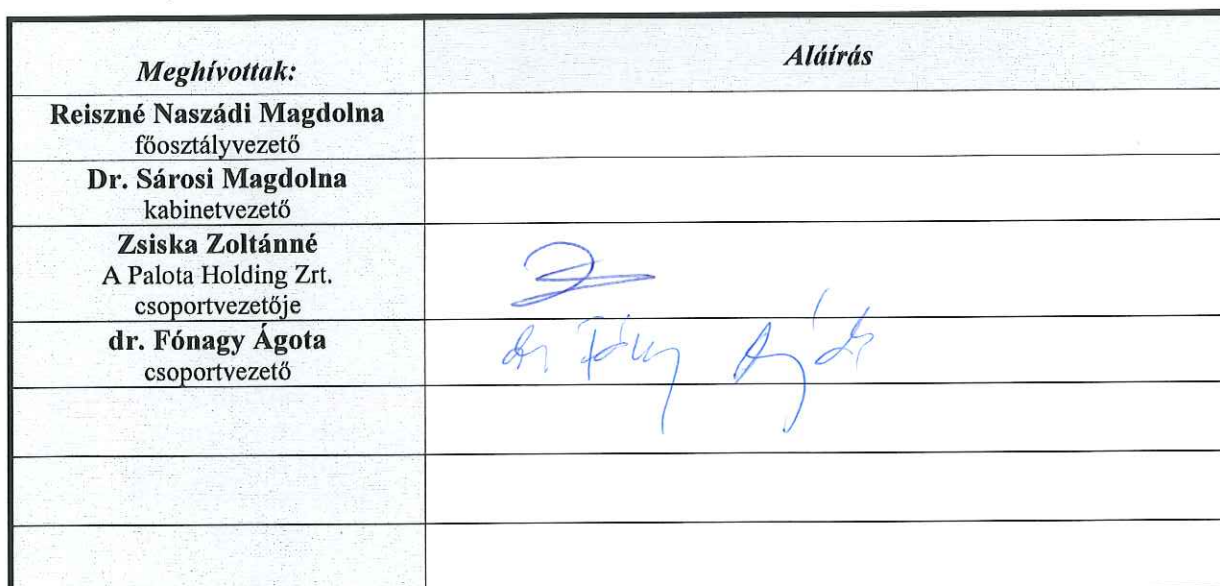 Meghívottak:
Aláírás
Reiszné Naszádi Magdolna
főosztályvezető
Dr. Sárosi Magdolna
kabinetvezető
Zsiska Zoltánné
A Palota Holding Zrt.
csoportvezetője
dr. Fónagy Ágota
csoportvezető
dr Fónagy Ágota